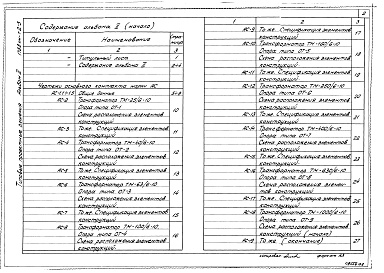 2
Содержание альбома II (начало)
Обозначение
Наименование
Стра-
ница
1
2
3
Титульный лист
1
Содержание альбома II
2÷4
Чертежи основного комплекта марки АС
Общие данные
АС-2
Трансформатор ТМ-25/6-10
Опора типа ОТ-1
Схема расположения элементов
конструкций
10
АС-3
То же. Спецификация элементов
конструкций
11
Опора типа ОТ-2
Схема расположения элементов
конструкций
12
АС-5
То же. Спецификация элементов
конструкций
13
АС-6
Трансформатор ТМ-63/6-10
Опора типа ОТ-3
Схема расположения элементов
конструкций
14
АС-7
То же. Спецификация элементов
конструкций
15
АС-8
Трансформатор ТМ-100/6-10
Опора типа ОТ-4
Схема расположения элементов
конструкций
16
1
2
3
АС-9
То же. Спецификация элементов
конструкций
17
АС-10
Трансформатор ТМ-160/6-10
Опора типа ОТ-5
Схема расположения элементов
конструкций
18
АС-11
То же. Спецификация элементов
конструкций
19
АС-12
Трансформатор ТМ-250/6-10
Опора типа ОТ-6
Схема расположения элементов
конструкций
20
АС-13
То же. Спецификация элементов
конструкций
21
АС-14
Трансформатор ТМ-400/6-10
Опора типа ОТ-7
Схема расположения элементов
конструкций
22
АС-15
То же. Спецификация элементов
конструкций
23
АС-16
Трансформатор ТМ-630/6-10
Опора типа ОТ-8
Схема расположения элемен-
тов конструкций
24
АС-17
То же. Спецификация элементов
конструкций
25
АС-18
Опора типа
Схема расположения элементов
конструкций (начало)
26
АС-19
То же (окончание)
27